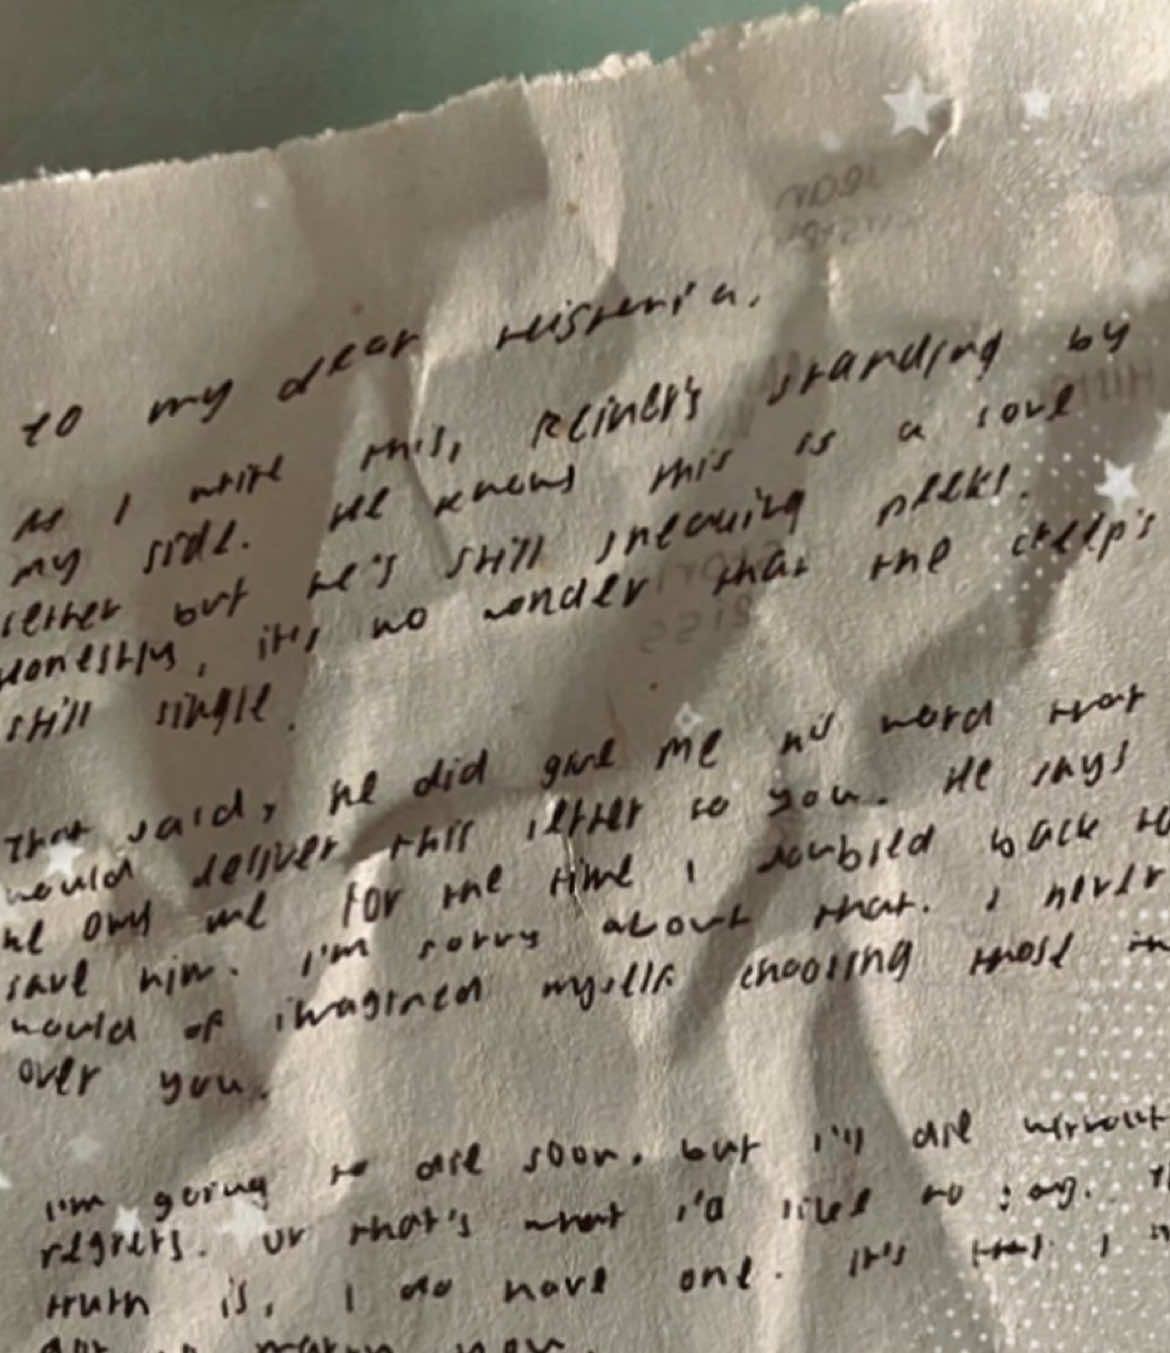 to my dear Historia,
As I write this, Reiner's standing by
my side. He knows this is a love
letter but he's still sneaking peeks.
Honestly, it's no wonder that the creep's
still single.
That said, he did give me his word that
would deliver this letter to you. He says
he owes me for the time I doubled back to
save him. I'm sorry about that. I never
would of imagined myself choosing those in
over you.
I'm going to die soon. but I'll die without
regrets. Or that's what I'd like to say. Th
truth is, I do have one. It's that I
got to marry you.